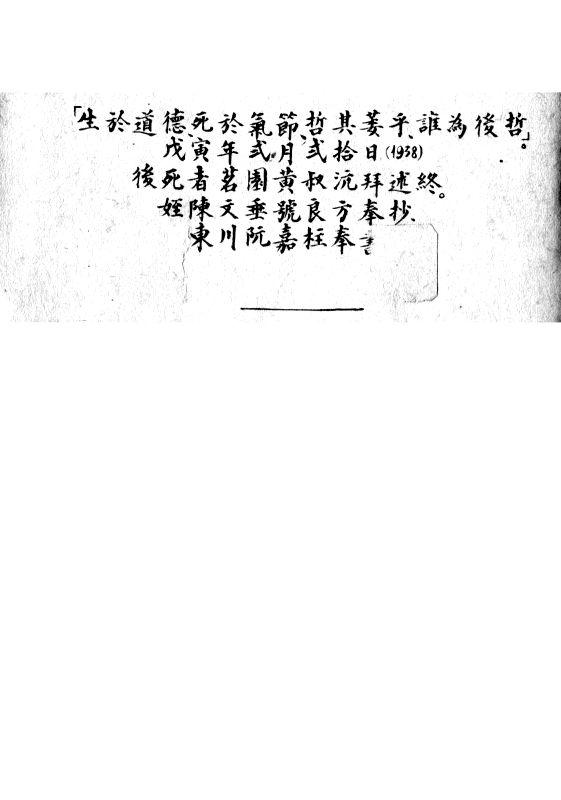 「生於道德、死於氣節、哲其萎乎、誰為後哲」。
戊寅年弍月弍拾日(1938)
後死者茗園黃叔沆拜述終。
姪陳文垂號良方奉抄.
東川阮嘉枉奉書